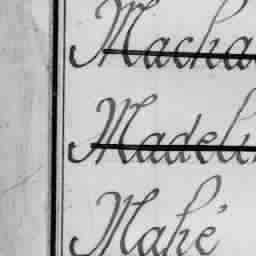 Macha
Madeli
Mahé